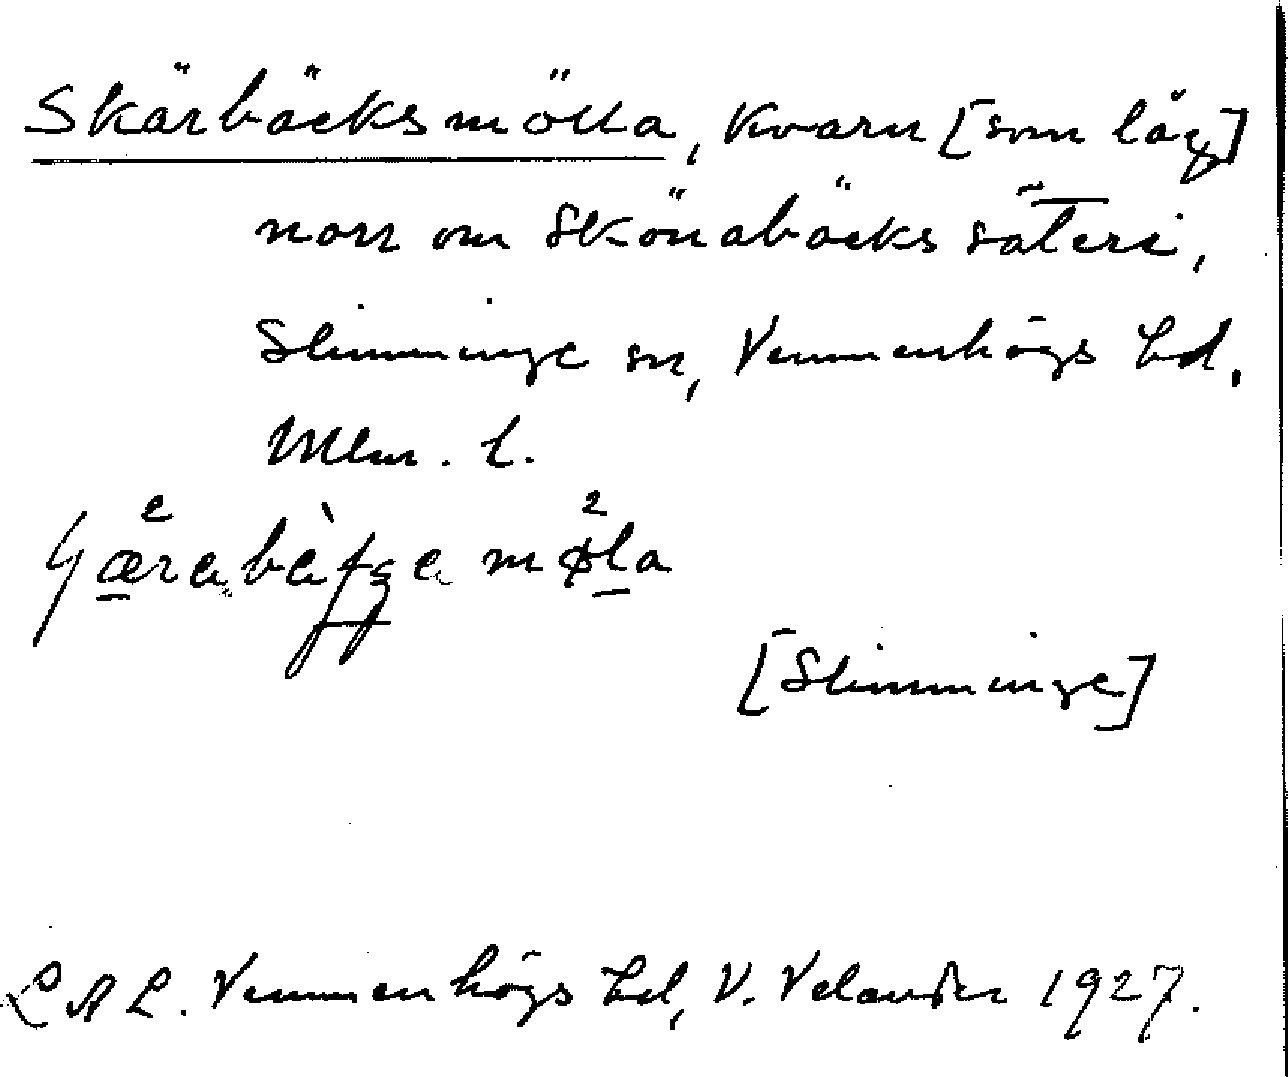 Skärbäcksmölla, Kvarn [som låg]
norr om Skönabäcks säteri,
Slimminge sn, Vemmenhögs hd.
Mlm. l.
möla
[Slimminge]
LAL. Vemmenhögs hd, V. Velander 1927.